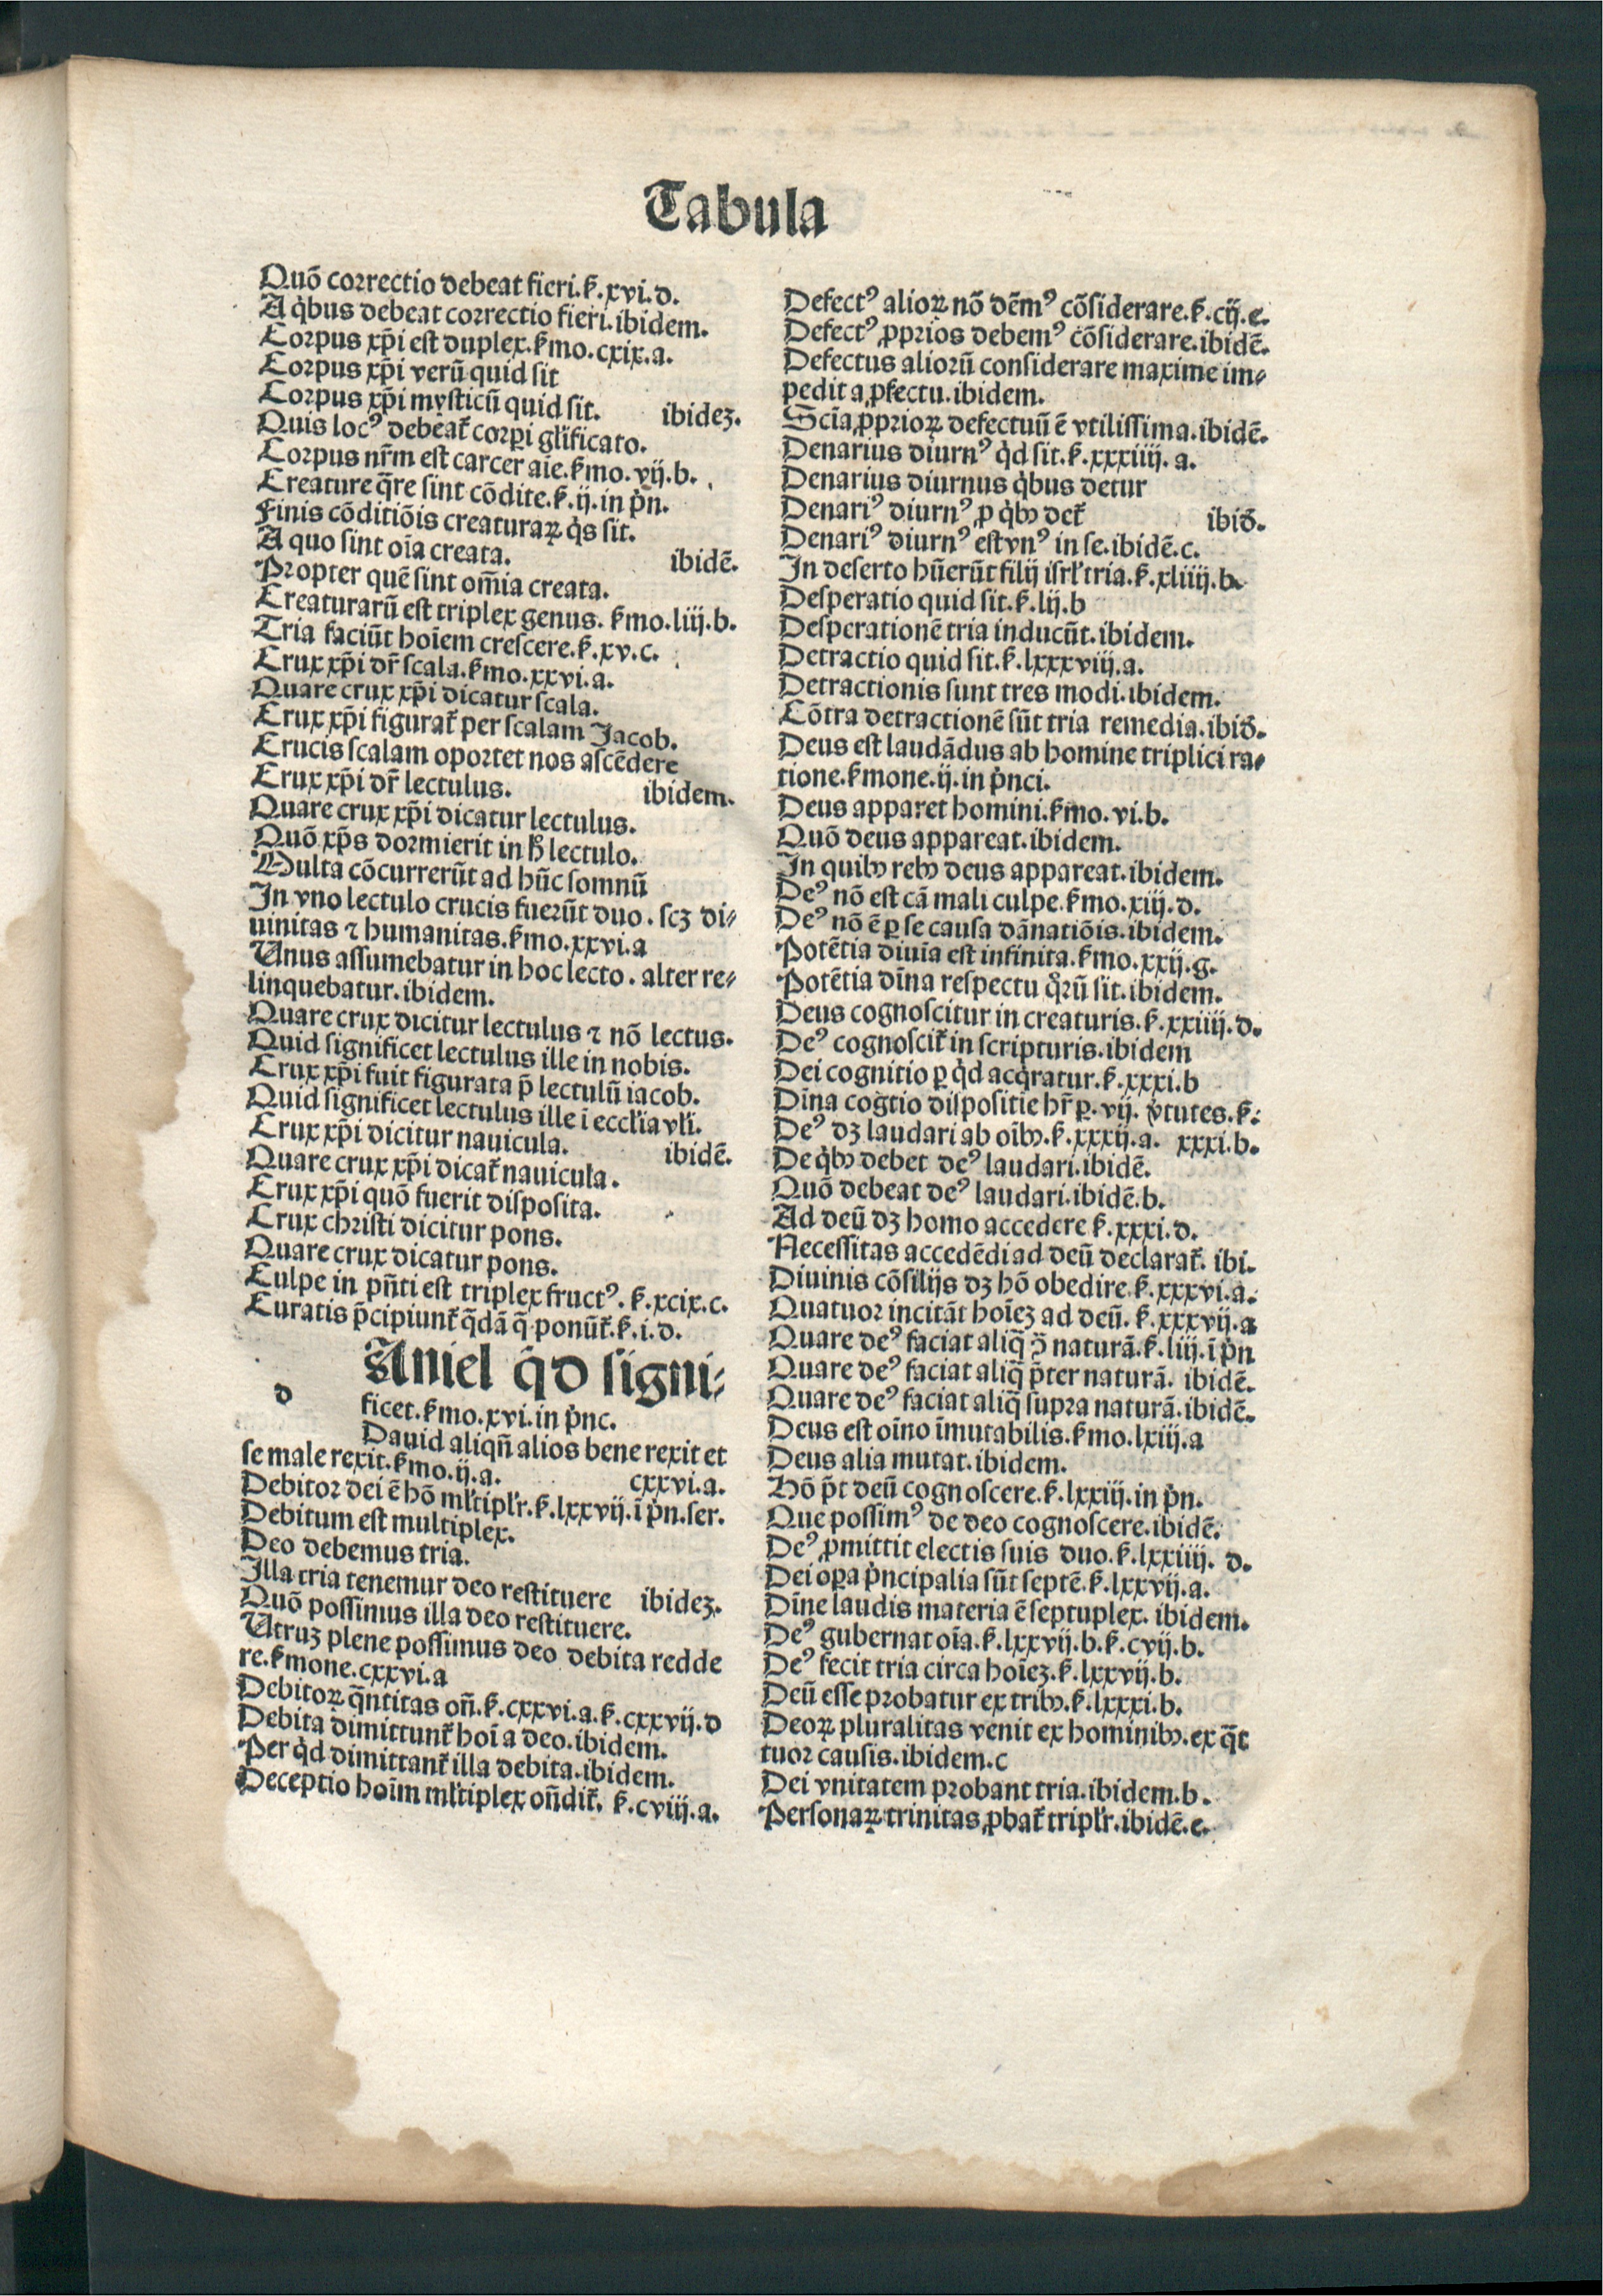 Tabula
Quō correctio debeat fieri.ẜ.xvi.d.
A qͥbus debeat correctio fieri.ibidem.
Corpus xp̄i est duplex.ẜmo.cxix.a.
Corpus xp̄i verū quid sit
Corpus xp̄i mysticū quid sit. ibidez.
Quis locꝰ debeat̄ corpi glificato.
Corpus nr̄m est carcer aīe.ẜmo.vij.b.
Creature q̄re sint cōdite.ẜ.ij.in pͥn.
Finis cōditiōis creaturaꝝ qͥs sit.
A quo sint oīa creata. ibidē.
Propter quē sint om̄ia creata.
Creaturarū est triplex genus. ẜmo.liij.b.
Tria faciūt hoīem crescere.ẜ.xv.c.
Crux xp̄i dr̄ scala.ẜmo.xxvi.a.
Quare crux xp̄i dicatur scala.
Crux xp̄i figurat̄ per scalam Jacob.
Crucis scalam oportet nos ascēdere
Crux xp̄i dr̄ lectulus. ibidem.
Quare crux xp̄i dicatur lectulus.
Quō xp̄s dormierit in hͦ lectulo.
Multa cōcurrerūt ad hūc somnū
In vno lectulo crucis fuerūt duo. scꝫ di⸗
uinitas ⁊ humanitas.ẜmo.xxvi.a
Unus assumebatur in hoc lecto. alter re⸗
linquebatur.ibidem.
Quare crux dicitur lectulus ⁊ nō lectus.
Quid significet lectulus ille in nobis.
Crux xp̄i fuit figurata p̄ lectulū iacob.
Quid significet lectulus ille ī eccľia vľi.
Crux xp̄i dicitur nauicula. ibidē.
Quare crux xp̄i dicat̄ nauicula.
Crux xp̄i quō fuerit disposita.
Crux christi dicitur pons.
Quare crux dicatur pons.
Culpe in pn̄ti est triplex fructꝰ. ẜ.xcix.c.
Curatis p̄cipiunt̄ q̄dā q̄ ponūt̄.ẜ.i.d.
d Aniel qͥd signi⸗
ficet.ẜmo.xvi.in pͥnc.
Dauid aliqn̄ alios bene rexit et
se male rexit.ẜmo.ij.a. cxxvi.a.
Debitor dei ē hō mľtipľr.ẜ.lxxvij.ī pͥn.ser.
Debitum est multiplex.
Deo debemus tria.
Illa tria tenemur deo restituere ibidez.
Quō possimus illa deo restituere.
Utruꝫ plene possimus deo debita redde
re.ẜmone.cxxvi.a
Debitoꝝ q̄ntitas on̄.ẜ.cxxvi.a.ẜ.cxxvij.d
Debita dimittunt̄ hoī a deo.ibidem.
Per qͥd dimittant̄ illa debita.ibidem.
Deceptio hoīm mľtiplex on̄dit̄. ẜ.cviij.a.
Defectꝰ alioꝝ nō dēmꝰ cōsiderare.ẜ.cij.e.
Defectꝰ ꝓprios debemꝰ cōsiderare.ibidē.
Defectus aliorū considerare maxime im⸗
pedit a ꝓfectu.ibidem.
Scīa ꝓprioꝝ defectuū ē vtilissima.ibidē.
Denarius diurnꝰ qͥd sit.ẜ.xxxiiij. a.
Denarius diurnus qͥbus detur
Denariꝰ diurnꝰ ꝑ qͥbꝰ det̄ ibid̄.
Denariꝰ diurnꝰ est vnꝰ in se.ibidē.c.
In deserto hūerūt filij isrľ tria.ẜ.xliiij.b.
Desperatio quid sit.ẜ.lij.b
Desperationē tria inducūt.ibidem.
Detractio quid sit.ẜ.lxxxviij.a.
Detractionis sunt tres modi.ibidem.
Cōtra detractionē sūt tria remedia.ibid̄.
Deus est laudādus ab homine triplici ra⸗
tione.ẜmone.ij.in pͥnci.
Deus apparet homini.ẜmo.vi.b.
Quō deus appareat.ibidem.
In quibꝰ rebꝰ deus appareat.ibidem.
Deꝰ nō est cā mali culpe.ẜmo.xiij.d.
Deꝰ nō ē ꝑ se causa dānatiōis.ibidem.
Potētia diuīa est infinita.ẜmo.xxij.g.
Potētia dīna respectu qͦrū sit.ibidem.
Deus cognoscitur in creaturis.ẜ.xxiiij.d.
Deꝰ cognoscit̄ in scripturis.ibidem
Dei cognitio ꝑ qͥd acqͥratur.ẜ.xxxi.b
Dīna cogtio dispositie hr̄ ꝑ. vij. v̓tutes.ẜ.
Deꝰ dꝫ laudari ab oībꝰ.ẜ.xxxij.a. xxxi.b.
De qͥbꝰ debet deꝰ laudari.ibidē.
Quō debeat deꝰ laudari.ibidē.b.
Ad deū dꝫ homo accedere ẜ.xxxi.d.
Necessitas accedēdi ad deū declarat̄. ibi.
Diuinis cōsilijs dꝫ hō obedire.ẜ.xxxvi.a.
Quatuor incitāt hoīeꝫ ad deū. ẜ.xxxvij.a
Quare deꝰ faciat aliq̄ ꝯ̄ naturā.ẜ.liij.ī pͥn
Quare deꝰ faciat aliq̄ p̄ter naturā. ibidē.
Quare deꝰ faciat aliq̄ supra naturā.ibidē.
Deus est oīno īmutabilis.ẜmo.lxiij.a
Deus alia mutat.ibidem.
Hō p̄t deū cognoscere.ẜ.lxxiij.in pͥn.
Que possimꝰ de deo cognoscere.ibidē.
Deꝰ ꝓmittit electis suis duo.ẜ.lxxiiij. d.
Dei oꝑa pͥncipalia sūt septē.ẜ.lxxvij.a.
Dīne laudis materia ē septuplex. ibidem.
Deꝰ gubernat oīa.ẜ.lxxvij.b.ẜ.cvij.b.
Deꝰ fecit tria circa hoīeꝫ.ẜ.lxxvij.b.
Deū esse probatur ex tribꝰ.ẜ.lxxxi.b.
Deoꝝ pluralitas venit ex hominibꝰ.ex q̄t
tuor causis.ibidem.c
Dei vnitatem probant tria.ibidem.b.
Personaꝝ trinitas ꝓbat̄ tripľr.ibidē.e.